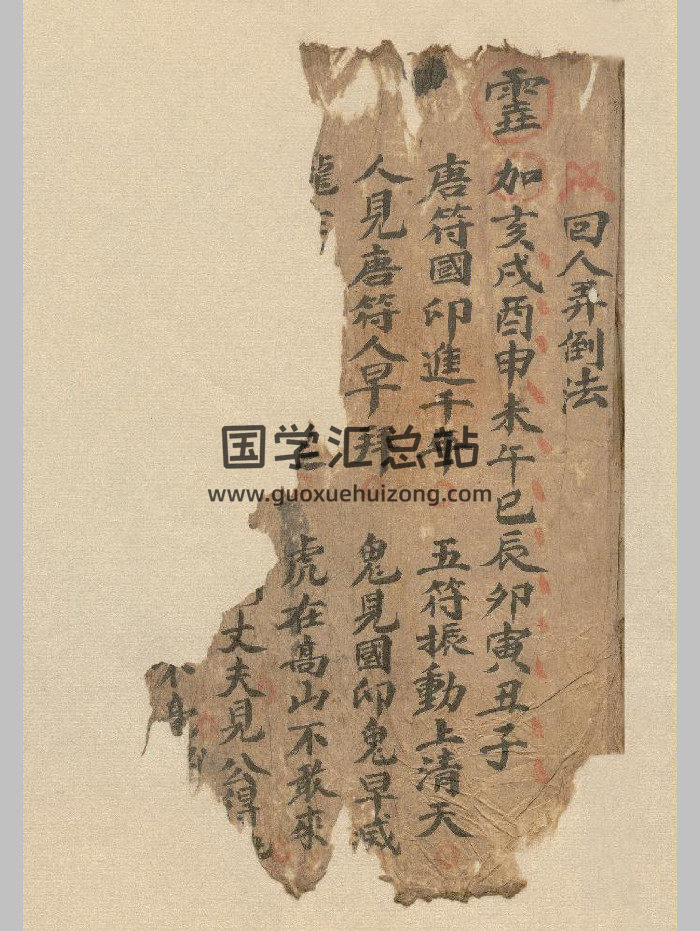 回人弄倒法
霊加亥戌酉申未午巳辰卯寅丑子
唐符國印進千 五符振動上清天
人見唐符人早拜 鬼見國印鬼早
龍 虎在高山不敢來
丈夫見公得
不
国学汇总站
www.guoxuehuizong.com